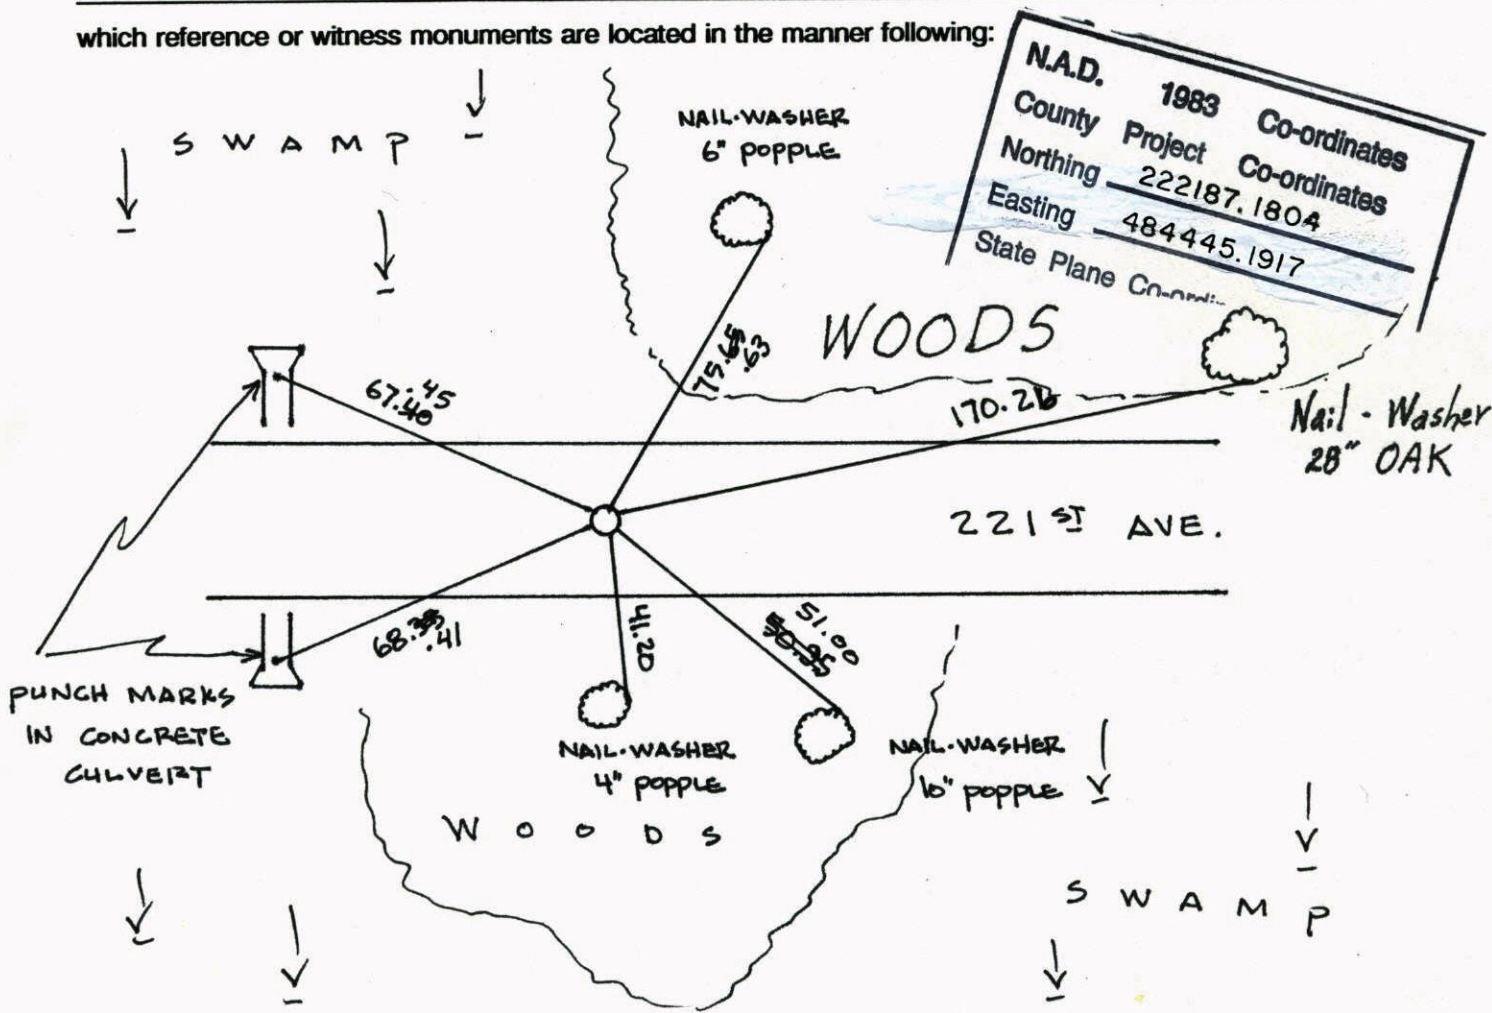 which reference or witness monuments are located in the manner following:
N.A.D. 1983 Co-ordinates
County Project Co-ordinates
Northing 222187.1804
Easting 484445.1917
State Plane
SWAMP
NAIL-WASHER
6" POPPLE
WOODS
.45
67.40
75.65
.63
170.26
Nail - Washer
28" OAK
221ST AVE.
68.38
.41
41.20
51.00
50.95
PUNCH MARKS
IN CONCRETE
CULVERT
NAIL-WASHER
4" POPPLE
NAIL-WASHER
10" POPPLE
WOODS
SWAMP